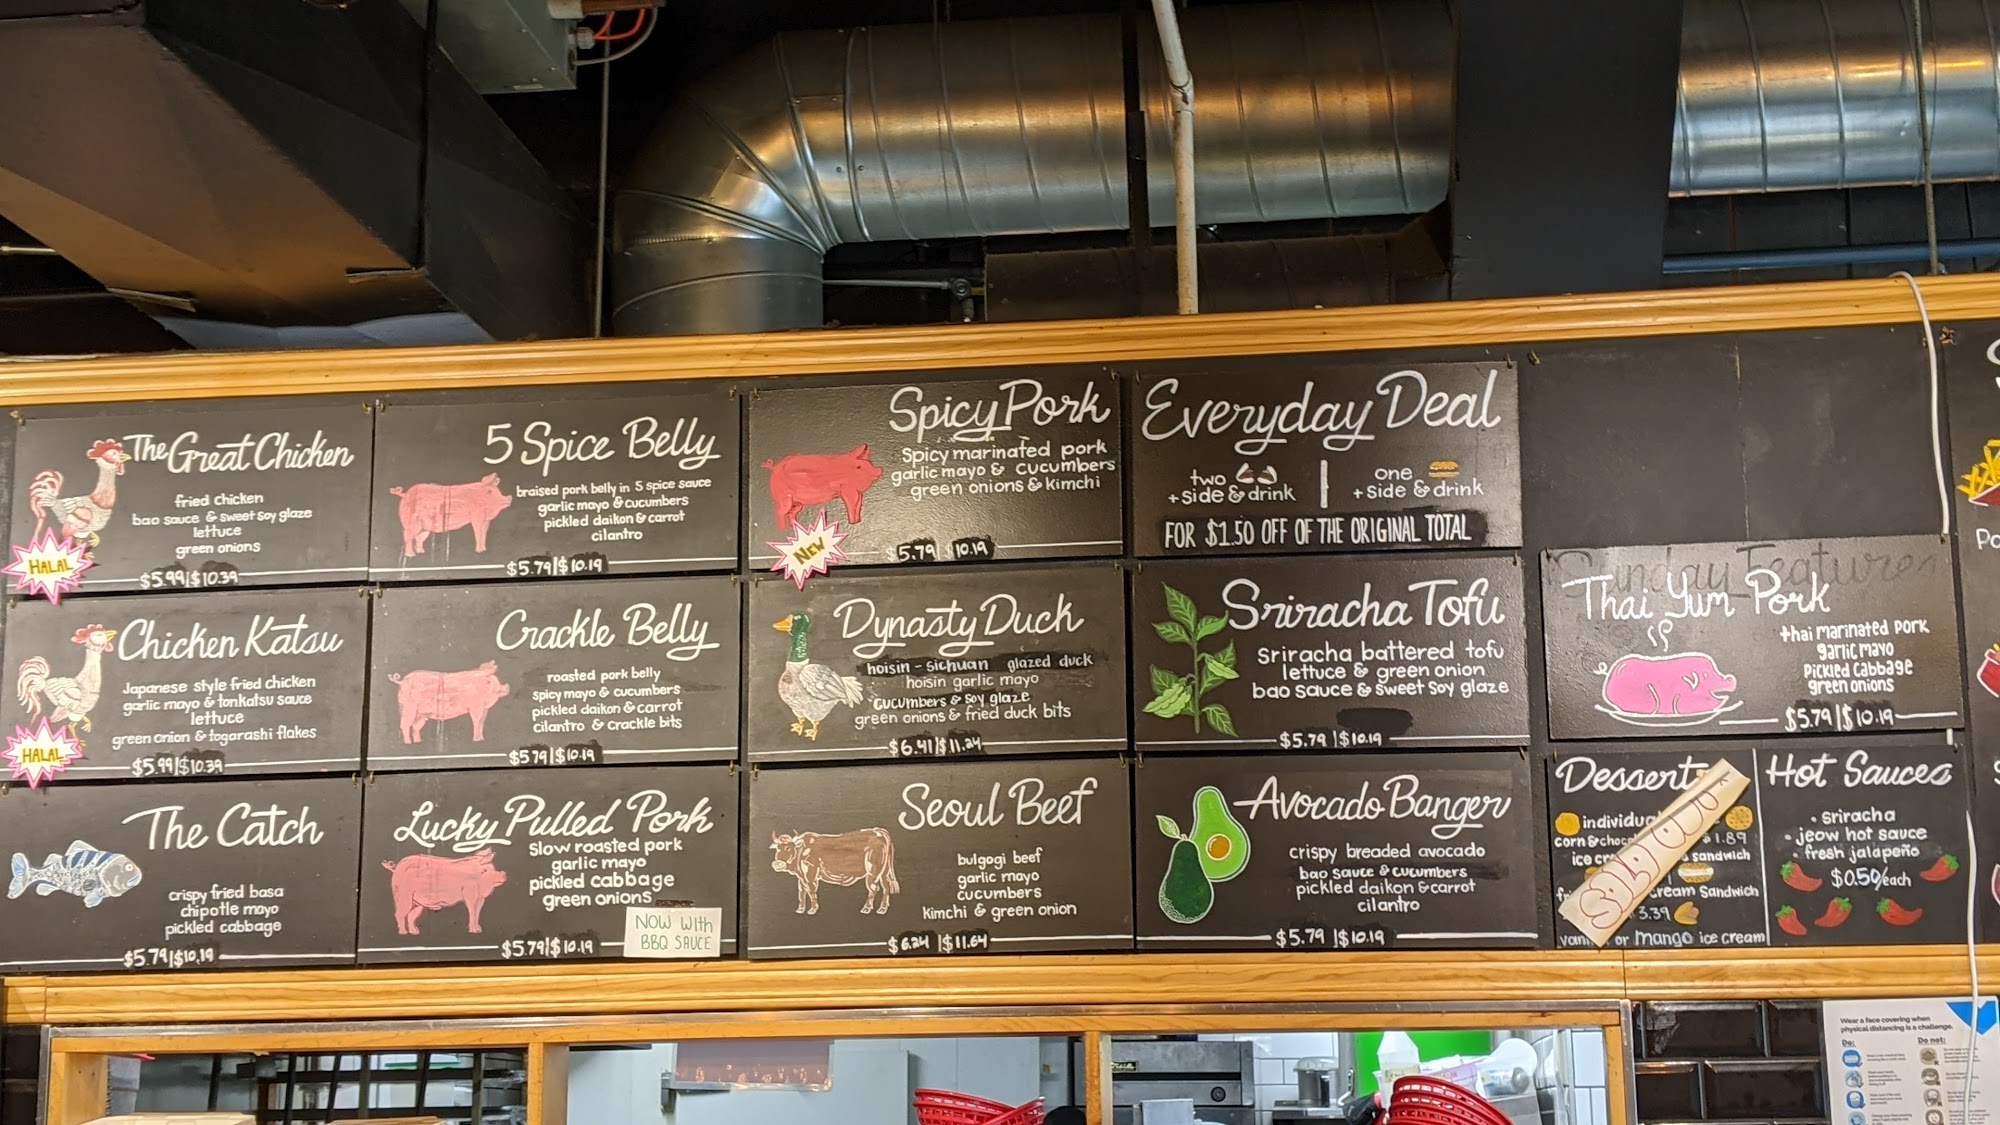 The Great Chicken
fried chicken
bao sauce & sweet soy glaze
lettuce
green onions
HALAL
$5.99|$10.39
5 Spice Belly
braised pork belly in 5 spice sauce
garlic mayo & cucumbers
pickled daikon & carrot
cilantro
$5.79|$10.19
Spicy Pork
Spicy marinated pork
garlic mayo & cucumbers
green onions & kimchi
NEW
$5.79|$10.19
Everyday Deal
two
+side & drink
one
+side & drink
FOR $1.50 OFF OF THE ORIGINAL TOTAL
Chicken Katsu
Japanese style fried chicken
garlic mayo & tonkatsu sauce
lettuce
green onion & togarashi flakes
HALAL
$5.99|$10.39
Crackle Belly
roasted pork belly
spicy mayo & cucumbers
pickled daikon & carrot
cilantro & crackle bits
$5.79|$10.19
Dynasty Duck
hoisin-sichuan glazed duck
hoisin garlic mayo
cucumbers & soy glaze
green onions & fried duck bits
$6.41|$11.24
Sriracha Tofu
sriracha battered tofu
lettuce & green onion
bao sauce & sweet soy glaze
$5.79|$10.19
Sunday Feature
Thai Yum Pork
thai marinated pork
garlic mayo
pickled cabbage
green onions
$5.79|$10.19
The Catch
crispy fried basa
chipotle mayo
pickled cabbage
$5.79|$10.19
Lucky Pulled Pork
slow roasted pork
garlic mayo
pickled cabbage
green onions
NOW WITH
BBQ SAUCE
$5.79|$10.19
Seoul Beef
bulgogi beef
garlic mayo
cucumbers
kimchi & green onion
$6.24|$11.64
Avocado Banger
crispy breaded avocado
bao sauce & cucumbers
pickled daikon & carrot
cilantro
$5.79|$10.19
Desserts
individual
corn & choc $1.89
ice sandwich
cream sandwich
3.39
or mango ice cream
SOLD OUT
Hot Sauces
• sriracha
• jeow hot sauce
• fresh jalapeño
$0.50/each
Wear a face covering when
physical distancing is a challenge.
Do:
Do not: